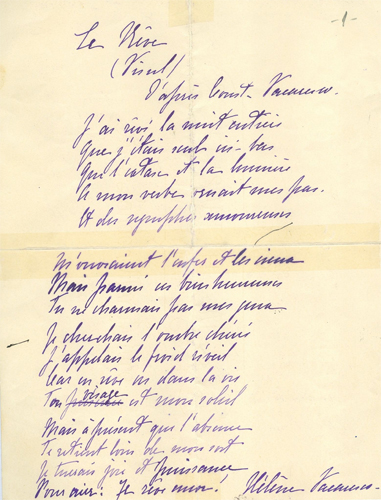 -1-
Le Rêve
(Visul)
D'après Const. Vacaresco.
J'ai rêvé la nuit entière
Que j'étais seul ici-bas
Que l'extase et la lumière
A mon verbe ornait mes pas.
Et des nymphes amoureuses
M'envoyaient l'enfer et les cieux
Mais parmi ces bienheureuses
Tu ne charmais pas mes yeux
Je cherchais l'ombre chérie
J'appelais le froid réveil
Car en rêve ou dans la vie
Ton visage est mon soleil
Mais à présent que l'absence
Te retient loin de mon sort
Je tenais joie et puissance
Pour oser: Je rêve encor!
Hélène Vacaresco.